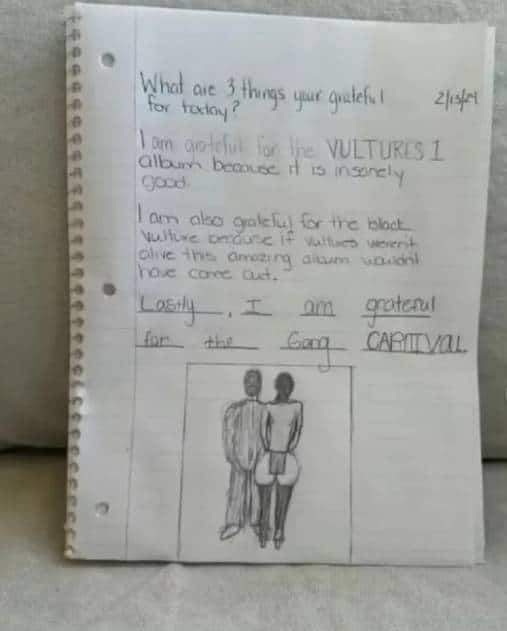 What are 3 things your grateful
for today?
2/13/24
I am grateful for the VULTURES 1
album because it is insanely
good.
I am also grateful for the black
vulture because if vultures weren't
alive this amazing album wouldn't
have come out.
Lastly, I am grateful
for the Song CARNIVAL